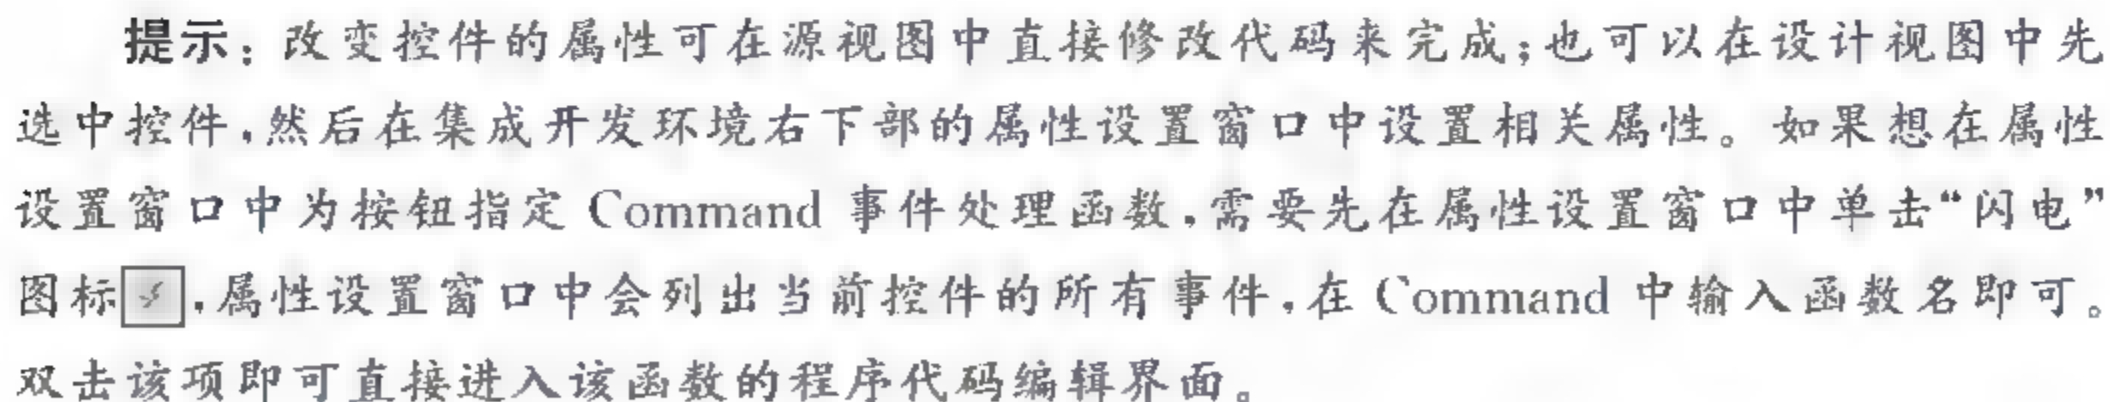 提示：改变控件的属性可在源视图中直接修改代码来完成；也可以在设计视图中先
选中控件，然后在集成开发环境右下部的属性设置窗口中设置相关属性。如果想在属性
设置窗口中为按钮指定 Command 事件处理函数，需要先在属性设置窗口中单击“闪电”
图标，属性设置窗口中会列出当前控件的所有事件，在 Command 中输入函数名即可。
双击该项即可直接进入该函数的程序代码编辑界面。